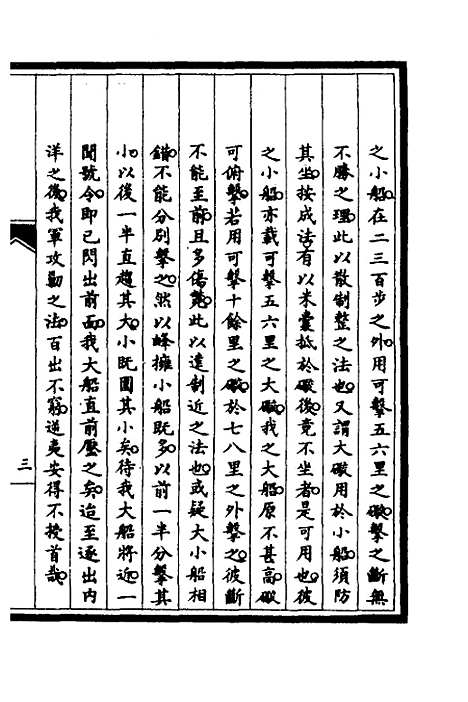 之小船在二三百步之外用可擊五六里之礮擊之斷無
不勝之理此以散制整之法也又謂大礮用於小船須防
其坐按成法有以米囊抵於礮後竟不坐者是可用也彼
之小船亦載可擊五六里之大礮我之大船原不甚高礮
可俯擊若用可擊十餘里之礮於七八里之外擊之彼斷
不能至前且多傷斃此以遠制近之法也或疑大小船相
錯不能分別擊之然以蜂擁小船既多以前一半分擊其
小以後一半直趨其大小既圍其小矣待我大船將近一
聞號令即已閃出前面我大船直前壓之矣迨至逐出內
洋之後我軍攻勦之法百出不窮逆夷安得不授首哉
三